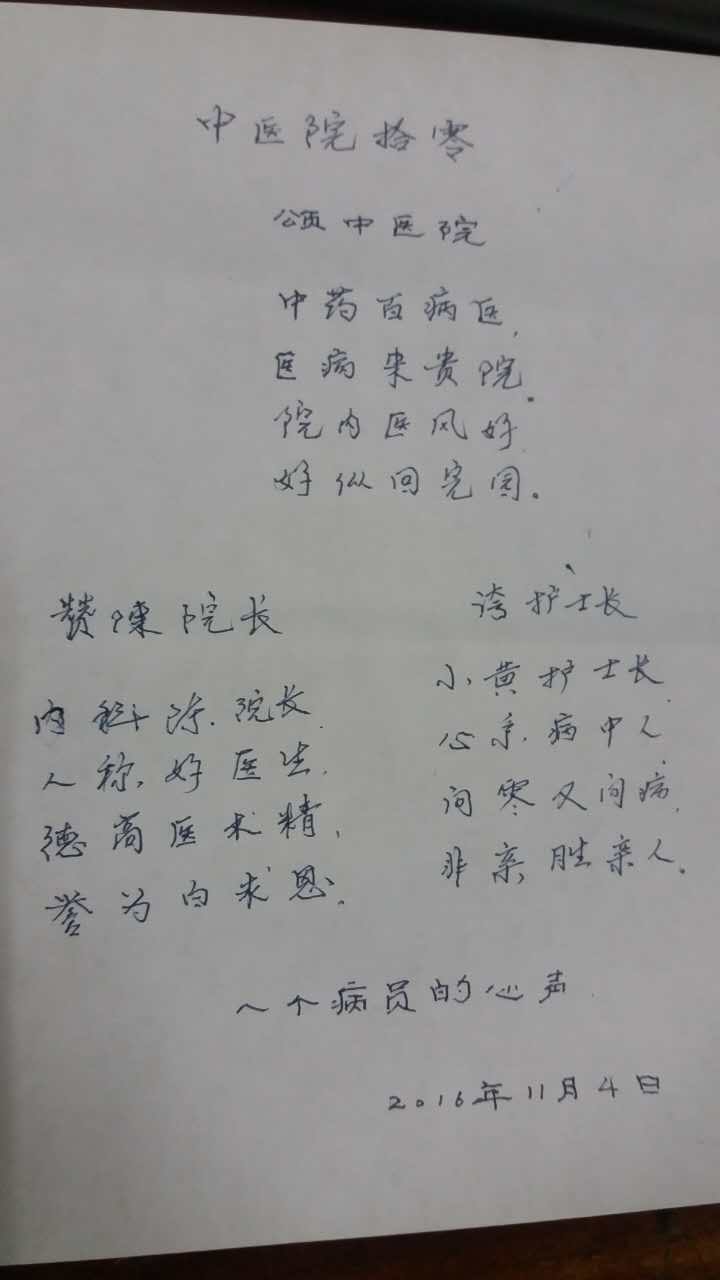 中医院拾零
颂中医院
中药百病医,
医病来贵院.
院内医风好,
好似回家园。
赞陈院长
内科陈院长,
人称好医生,
德高医术精,
誉为白求恩.
夸护士长
小黄护士长,
心系病中人,
问寒又问病,
非亲胜亲人。
一个病员的心声
2016年11月4日